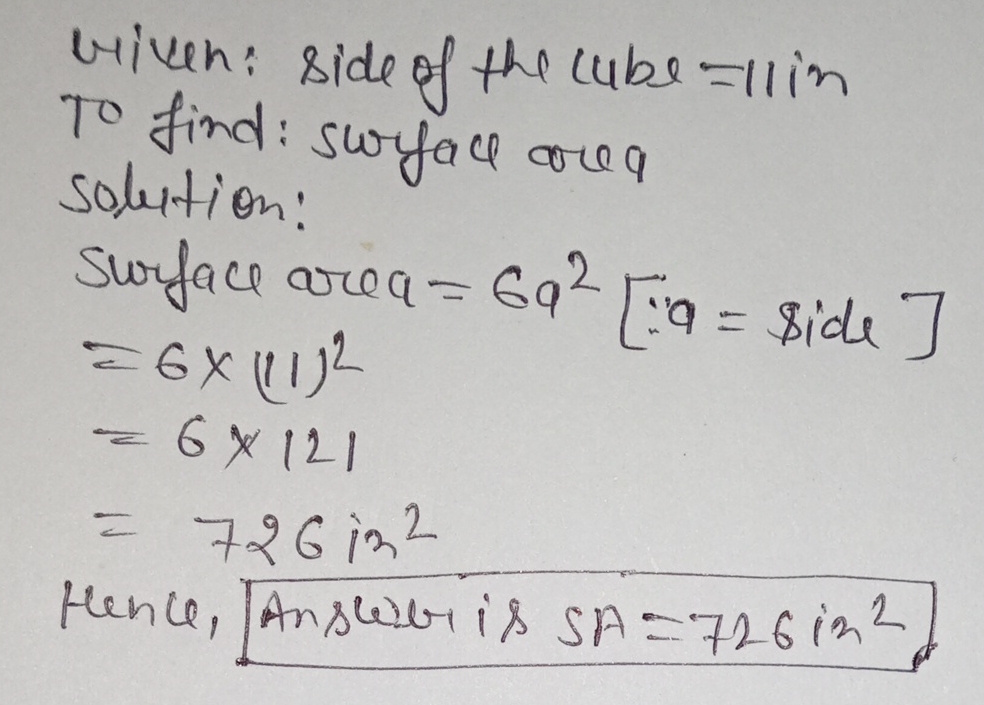 Given: side of the cube = 11in
To find: surface area
solution:
surface area = 6a² [∵a = side]
= 6 × (11)²
= 6 × 121
= 726 in²
Hence, Answer is SA = 726 in²